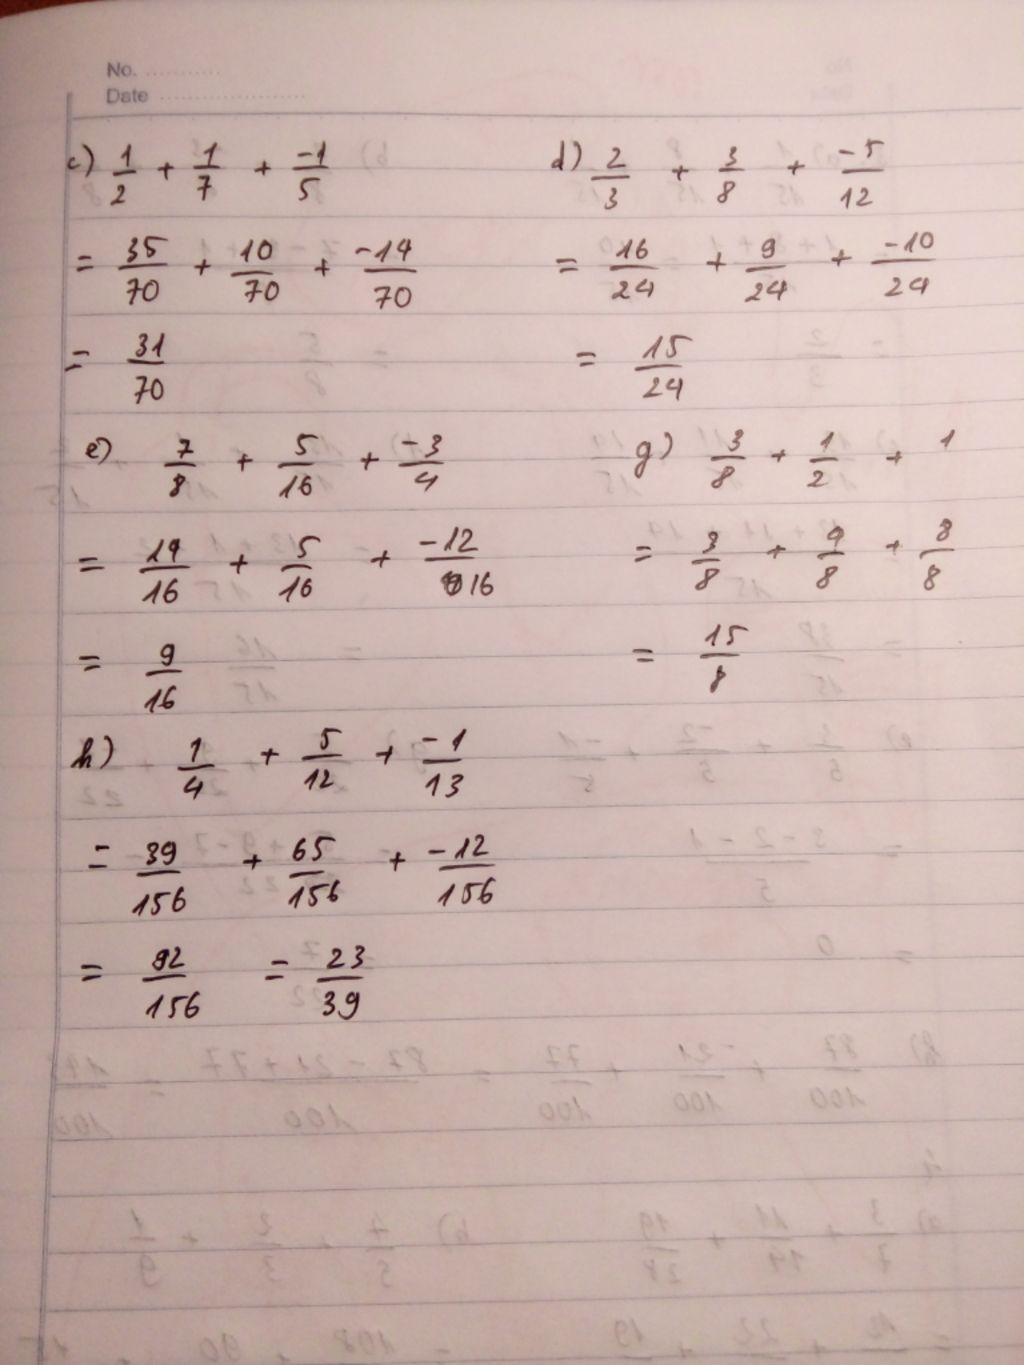 No. ...........
Date ......................
c) 1/2 + 1/7 + -1/5
= 35/70 + 10/70 + -14/70
= 31/70
d) 2/3 + 3/8 + -5/12
= 16/24 + 9/24 + -10/24
= 15/24
e) 7/8 + 5/16 + -3/4
= 14/16 + 5/16 + -12/16
= 9/16
g) 3/8 + 1/2 + 1
= 3/8 + 4/8 + 8/8
= 15/8
h) 1/4 + 5/12 + -1/13
= 39/156 + 65/156 + -12/156
= 92/156 = 23/39